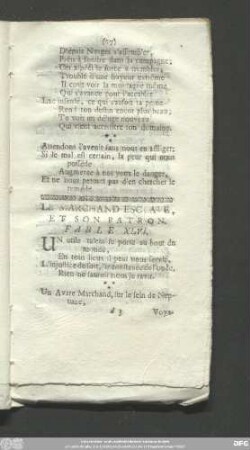 (57)
D'épais Nuages s'assembler,
Prêts à fondre dans la campagne;
Troublé d'une
Il croit voir la montagne même
Qui s'avance pour l'accabler.
Lui ce qui causoit ta peine
Rend ton destin encor plus beau;
Tu vois un déluge nouveau
Qui vient accroître ton domaine.
Attendons l'avenir sans nous en affliger:
Si le mal est certain, la peur qui nous
possede
Augmente à nos yeux le danger,
Et ne nous permet pas d'en chercher le
remede.
LE MARCHAND ESCLAVE,
ET SON PATRON.
FABLE XLVI.
UN utile talent se porte au bout du
monde,
En tous lieux il peut nous servir.
L'injustice du sort, l'inconstance de l'onde,
Rien ne sauroit nous le ravir.
Un Avare Marchand, sur le sein de Nep-
tune,
d 3 Voya-